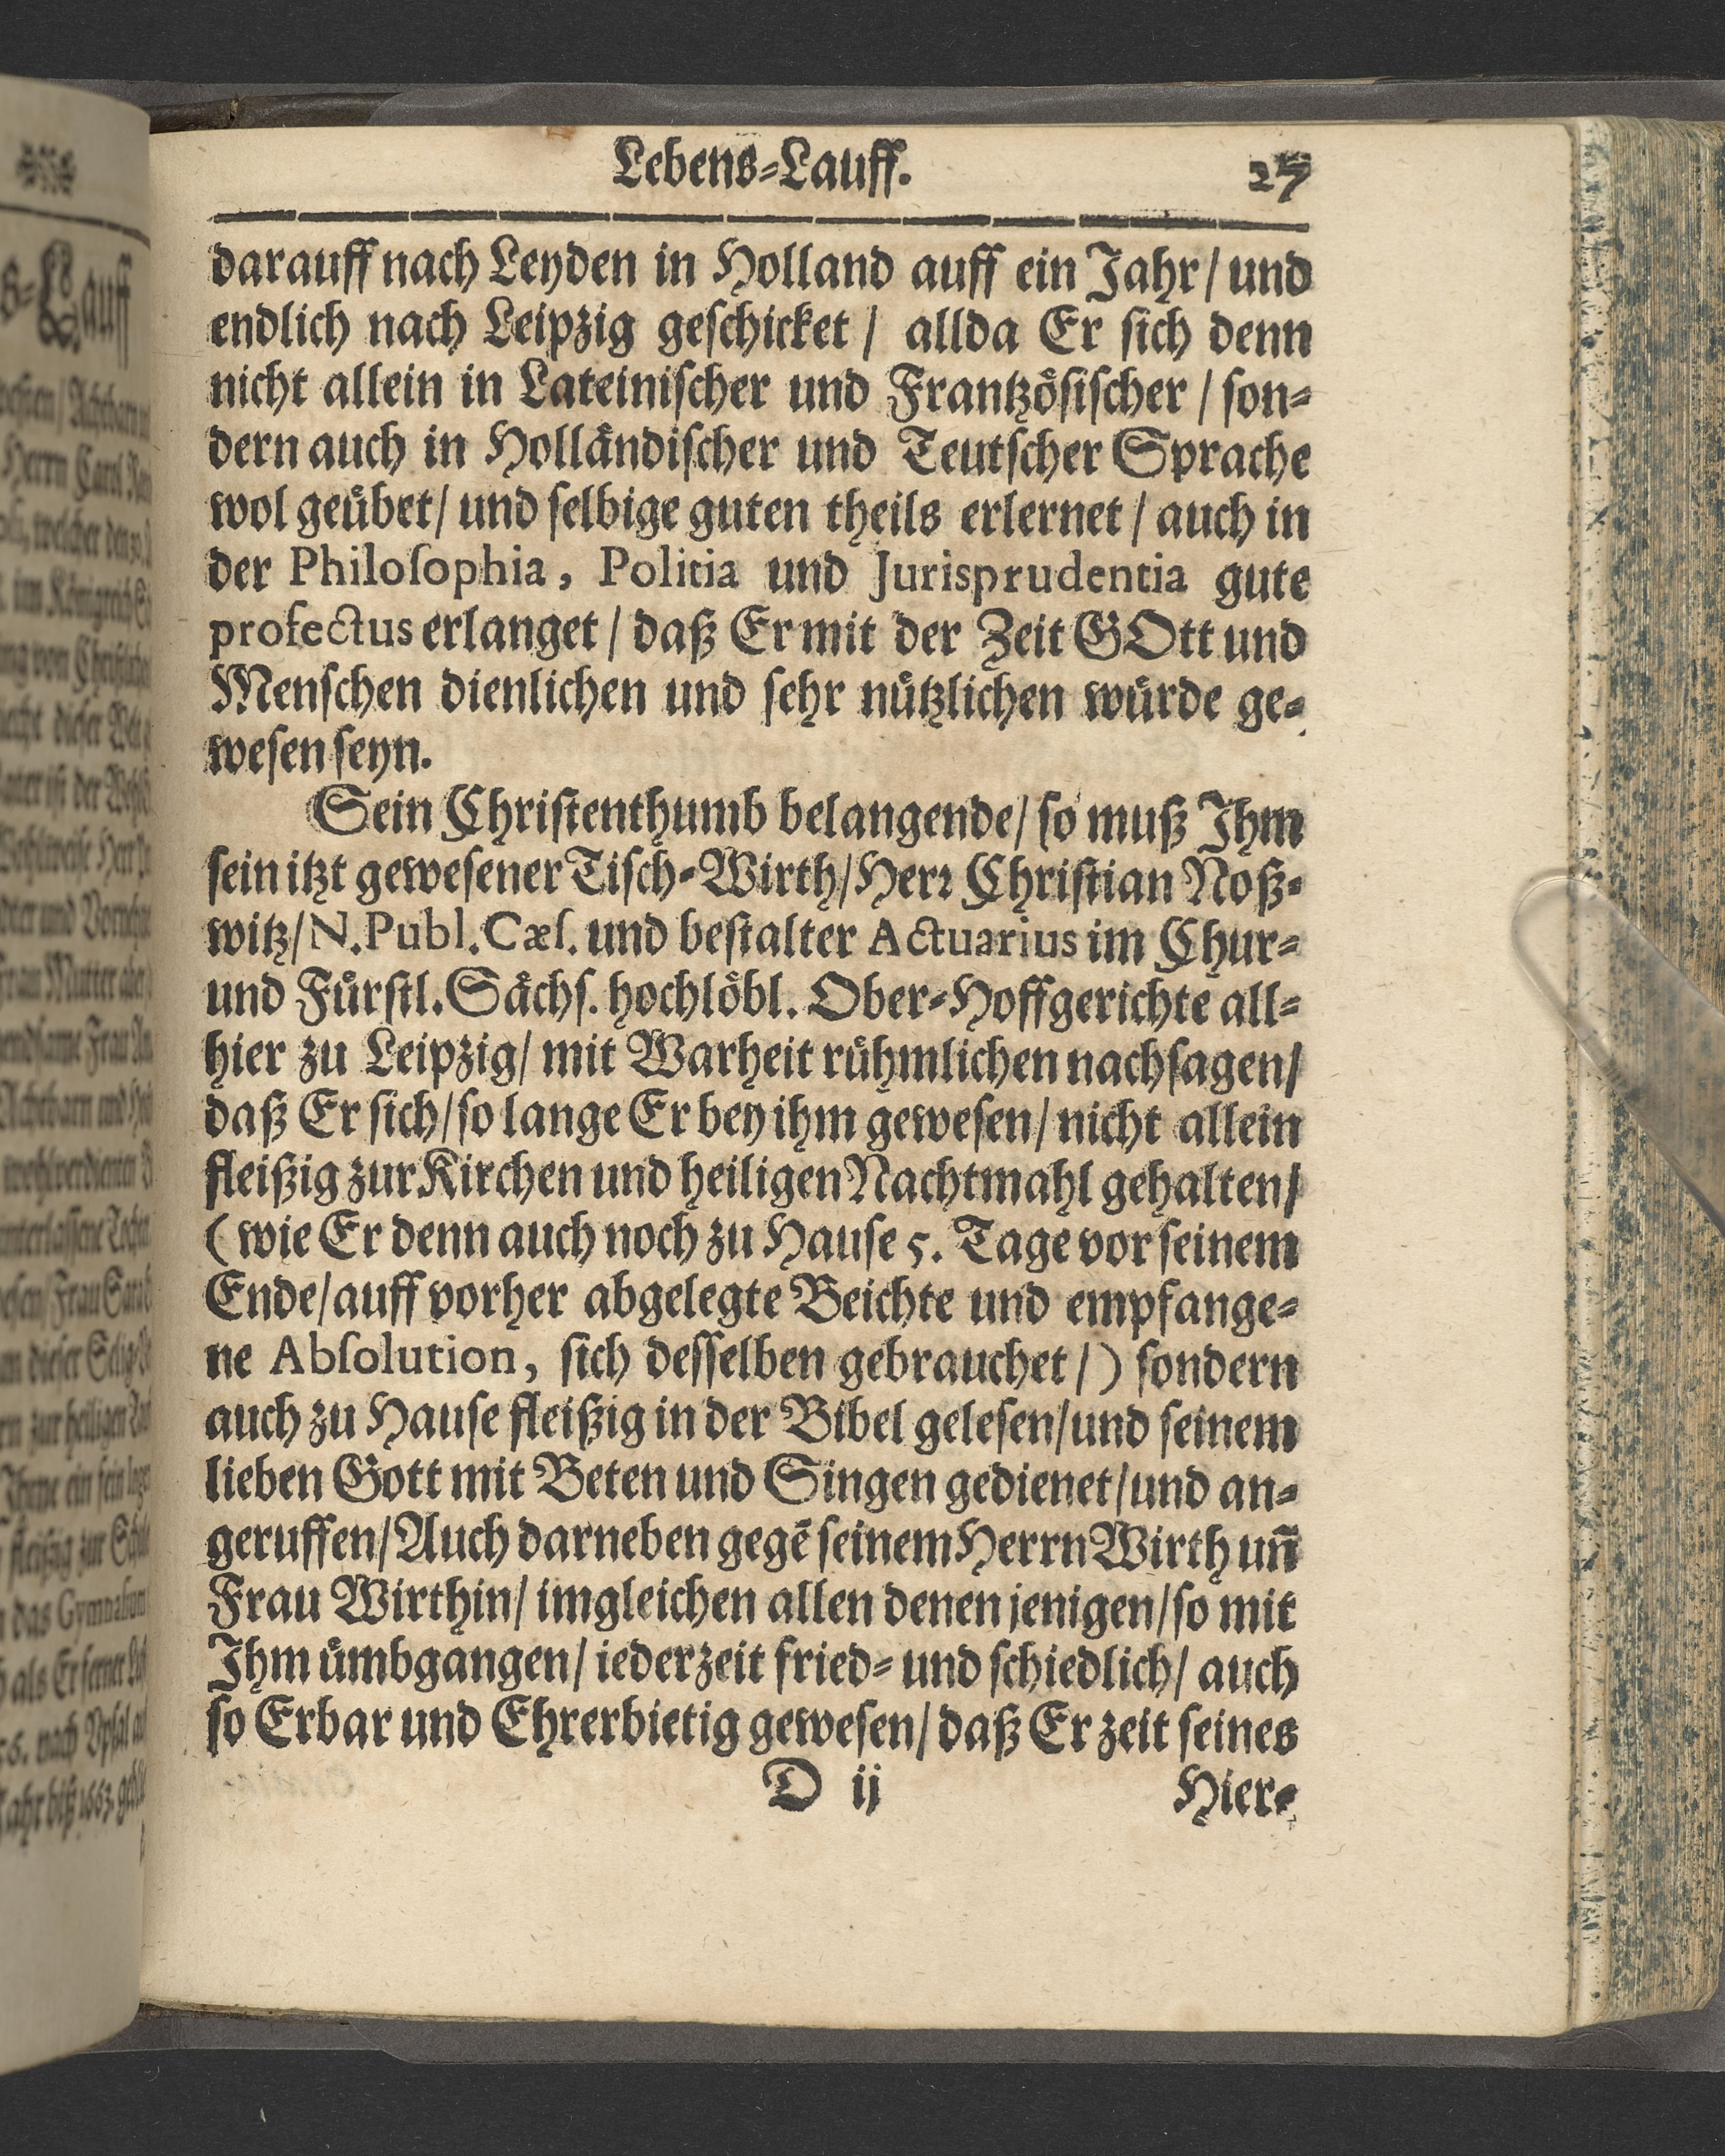 Lebens-Lauff. 27
darauff nach Leyden in Holland auff ein Jahr / und
endlich nach Leipzig geschicket / allda Er sich denn
nicht allein in Lateinischer und Frantzösischer / son-
dern auch in Holländischer und Teutscher Sprache
wol geübet / und selbige guten theils erlernet / auch in
der Philosophia, Politia und Jurisprudentia gute
profectus erlanget / daß Er mit der Zeit GOtt und
Menschen dienlichen und sehr nützlichen würde ge-
wesen seyn.
Sein Christenthumb belangende / so muß Ihm
sein itzt gewesener Tisch-Wirth / Herr Christian Noß-
witz / N. Publ. Cæs. und bestalter Actuarius im Chur-
und Fürstl. Sächs. hochlöbl. Ober-Hoffgerichte all-
hier zu Leipzig / mit Warheit rühmlichen nachsagen /
daß Er sich / so lange Er bey ihm gewesen / nicht allein
fleißig zur Kirchen und heiligen Nachtmahl gehalten /
( wie Er denn auch noch zu Hause 5. Tage vor seinem
Ende / auff vorher abgelegte Beichte und empfange-
ne Absolution, sich desselben gebrauchet / ) sondern
auch zu Hause fleißig in der Bibel gelesen / und seinem
lieben Gott mit Beten und Singen gedienet / und an-
geruffen / Auch darneben gegē seinem Herrn Wirth uñ
Frau Wirthin / imgleichen allen denen jenigen / so mit
Ihm ümbgangen / iederzeit fried- und schiedlich / auch
so Erbar und Ehrerbietig gewesen / daß Er zeit seines
D ij Hier-